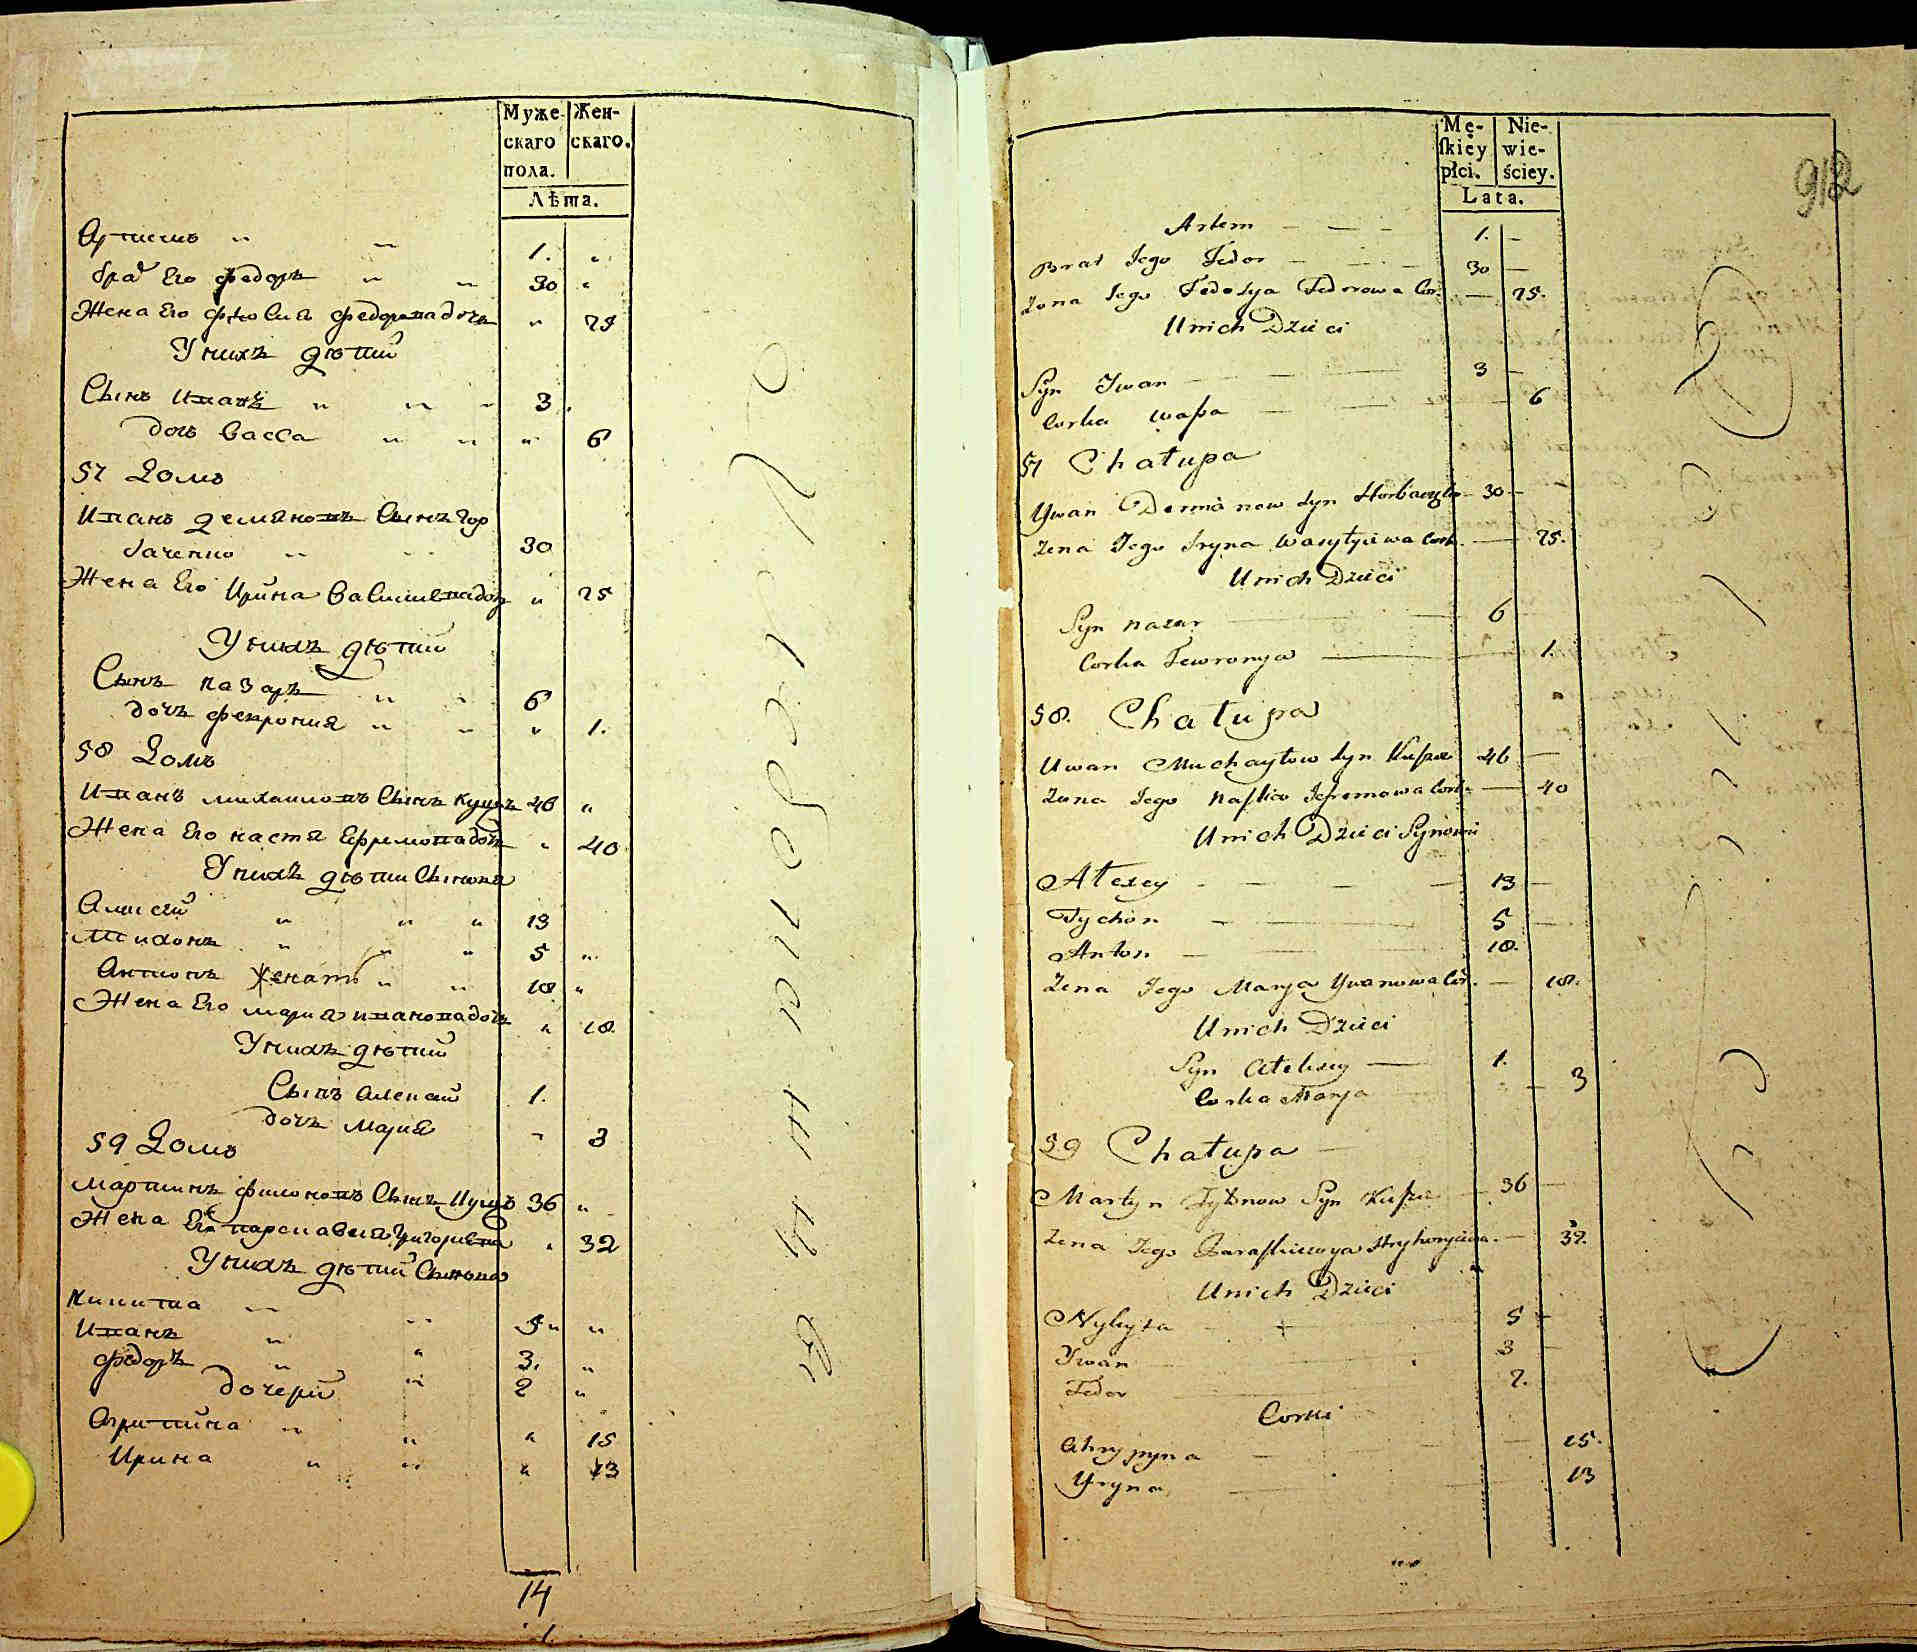 Муже-
скаго
пола.
Жен-
скаго.
Лѣта.
Артемъ " " 1. "
братъ Его Федоръ " " 30 "
Жена Его Федосия Федорова дочь " 25
У нихъ дѣтий
Сынъ Иванъ " " " 3.
дочь Васса " " " 6
57 Домъ
Иванъ Демяновъ Сынъ Гор
баченко " " 30
Жена Его Ирина Васильева доч " 25
У нихъ дѣтий
Сынъ Назаръ " " 6
дочь Феврония " " " 1.
58 Домъ
Иванъ Михайловъ Сынъ Куцъ 46 "
Жена Его Настя Ефремова дочь " 40
У нихъ дѣти Сыновя
Алексей " " " 13
Тихонъ " " " 5 "
Антонъ женатъ " " 18 "
Жена Его Мария Иванова дочь " 18.
У нихъ дѣтий
Сынъ Алексий 1.
дочь Мария " 3
59 Домъ
Мартинъ Филоновъ Сынъ Куцъ 36 "
Жена Его Парскавия Григориева " 32
У нихъ дѣтий Сыновя
Никита " " 5 " "
Иванъ " " 3. "
Федоръ " " 2 "
дочерй
Агрипина " " " 15
Ирина " " " 13
14
Mę-
ſkiéy
płci.
Nie-
wie-
ściey.
Lata.
912
Artem — — — 1. —
Brat Jego Fedor — — — 30 —
Zona Jego Fedosya Fedorowa Cor. — 25.
Unich Dzieci
Syn Iwan — — 3 —
Corka Waſsa — — 6
57 Chałupa
Ywan Demianow Syn Horbaczenko — 30 —
Zena Jego Iryna Wasylyiewa Cork. — 25.
Unich Dzieci
Syn Nazar — 6
Corka Fewronya — 1.
58. Chałupa
Uwan Muchayłow Syn Kuſza 46 —
Zona Jego Naſtia Jefremowa Cork. — 40
Unich Dzieci Synowi
Alexey — — — 13 —
Tychon — — 5 —
Anton — — 18.
Zena Jego Marya Ywanowa Cór. — 18.
Unich Dzieci
Syn Alexiey — 1.
Corka Marya — 3
59 Chałupa —
Martyn Fylonow Syn Kuſza — 36 —
Zena Jego Paraſkiewya Hryhoryiewa. — 32.
Unich Dzieci
Nykyta — 5 —
Iwan — 3 —
Fedor — 2.
Corki
Ahrypyna — — 15.
Yryna — — 13